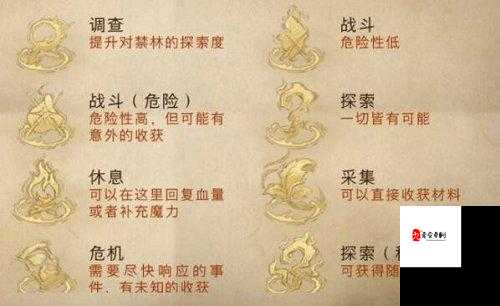 调查
提升对禁林的探索度
战斗
危险性低
战斗（危险）
危险性高，但可能有
意外的收获
探索
一切皆有可能
休息
可以在这里回复血量
或者补充魔力
采集
可以直接收获材料
危机
需要尽快响应的事
件，有未知的收获
探索（
可获得随